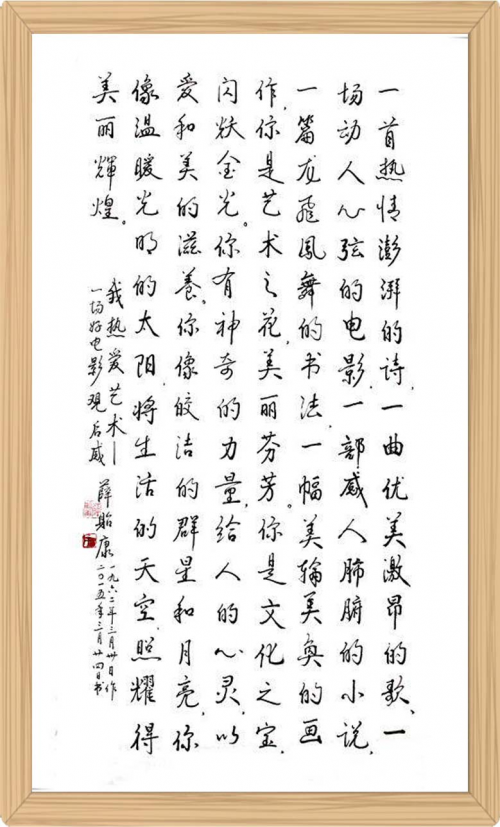 一首热情澎湃的诗,一曲优美激昂的歌、一
场动人心弦的电影,一部感人肺腑的小说,
一篇龙飞凤舞的书法,一幅美轮美奂的画
作,你是艺术之花,美丽芬芳。你是文化之宝,
闪烁金光。你有神奇的力量,给人的心灵,以
爱和美的滋养。你像皎洁的群星和月亮,你
像温暖光明的太阳,将生活的天空,照耀得
美丽辉煌。
我热爱艺术—
一场好电影观后感
薛贻康
一九六二年三月卅日作
二〇一五年三月廿四日书